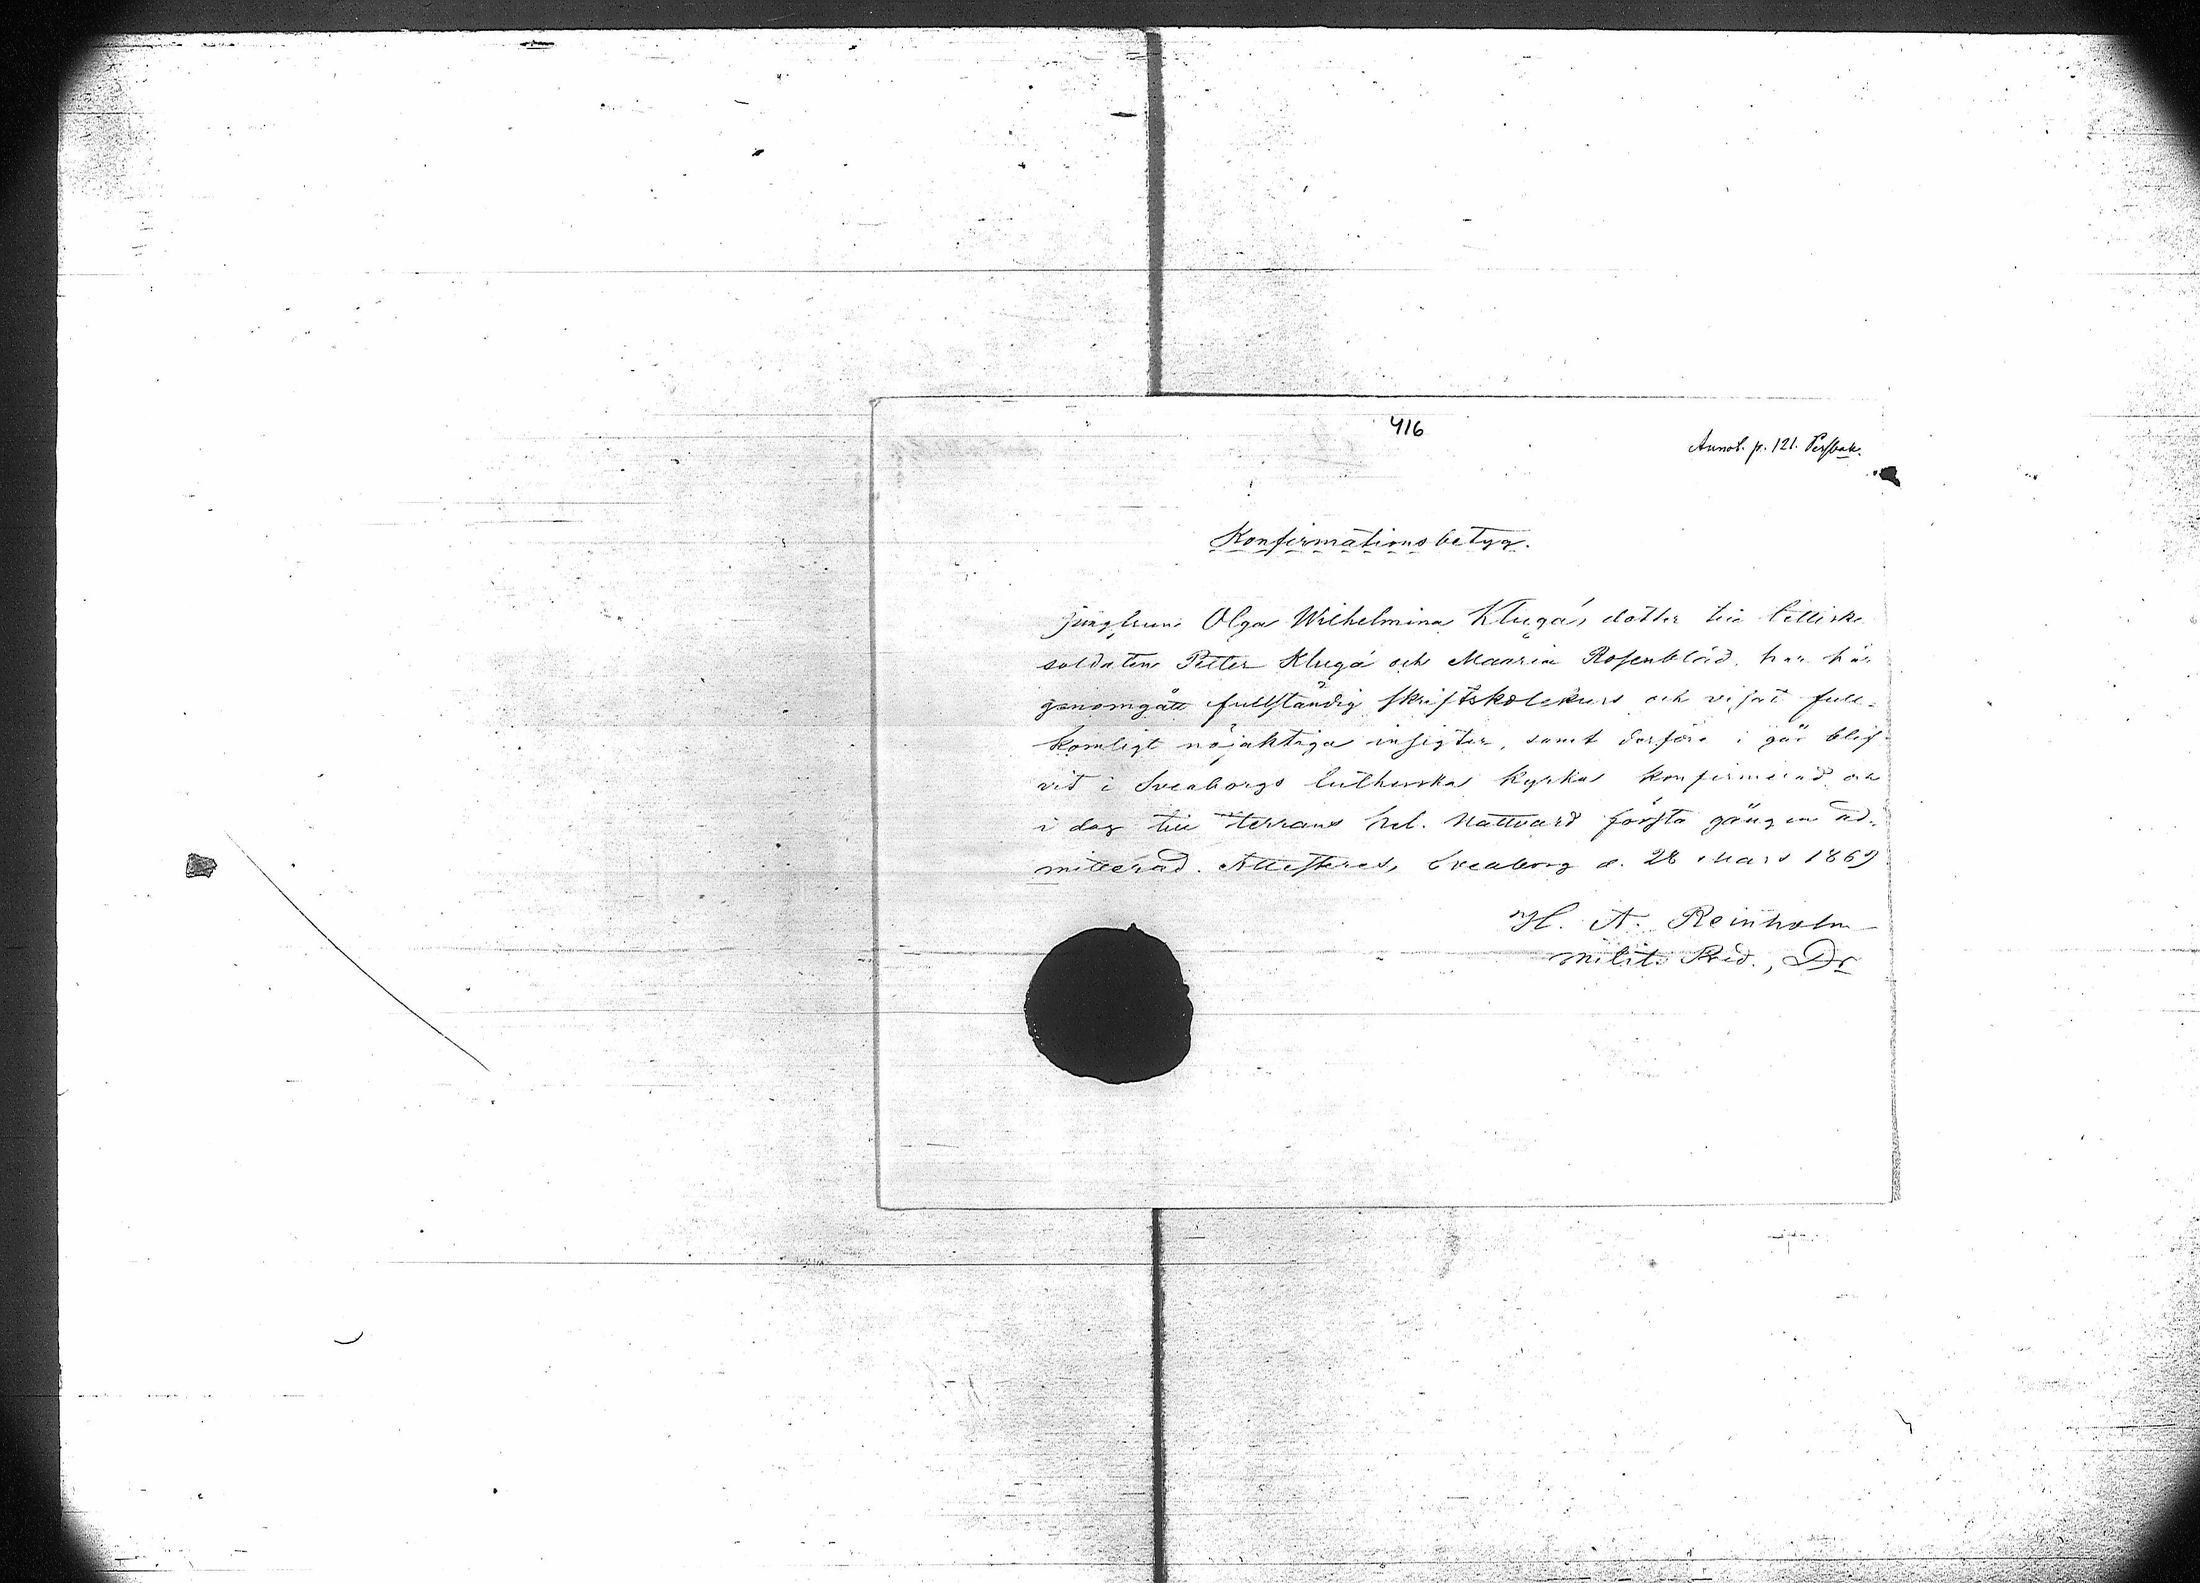 416
Annot. p. 121.
Konfirmationsbetyg.
Jungfrun Olga Wilhelmina Klugá, dotter till lettiske
soldaten Petter Klugá och Maaria Rosenblad, har här
genomgått fullständig skriftskolekurs och visat full-
komligt nöjaktiga insigter, samt derföre i går blif-
vit i Sveaborgs lutherska kyrka konfirmerad och
i dag till Herrans hel. Nattvard första gången ad-
mitterad. Attesteras, Sveaborg d. 28 Mars 1869
H. A. Reinholm
milit. Pred., Dr